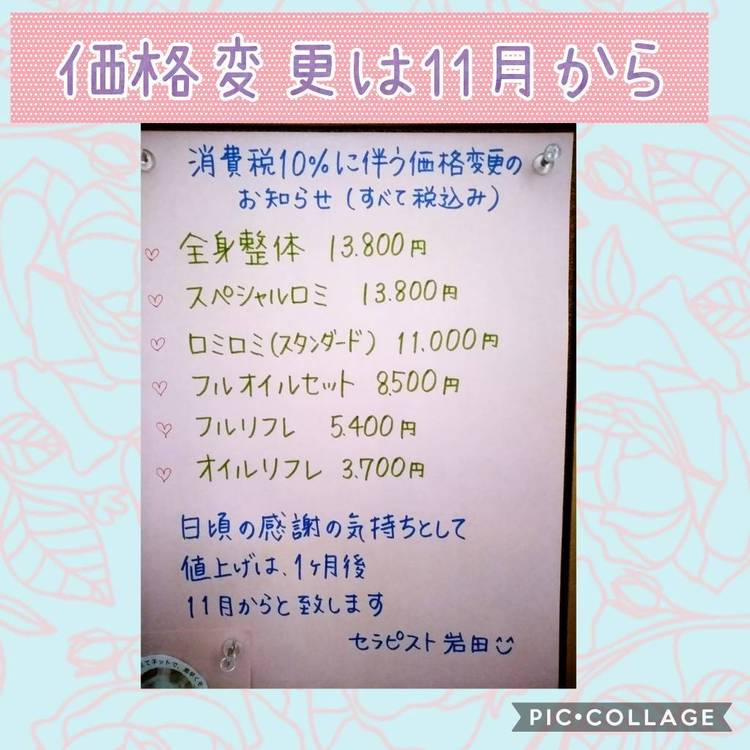 価格変更は11月から
消費税10%に伴う価格変更の
お知らせ(すべて税込み)
♡ 全身整体 13.800円
♡ スペシャルロミ 13.800円
♡ ロミロミ(スタンダード) 11.000円
♡ フルオイルセット 8.500円
♡ フルリフレ 5.400円
♡ オイルリフレ 3.700円
日頃の感謝の気持ちとして
値上げは、1ヶ月後
11月からと致します
セラピスト 岩田
PIC•COLLAGE